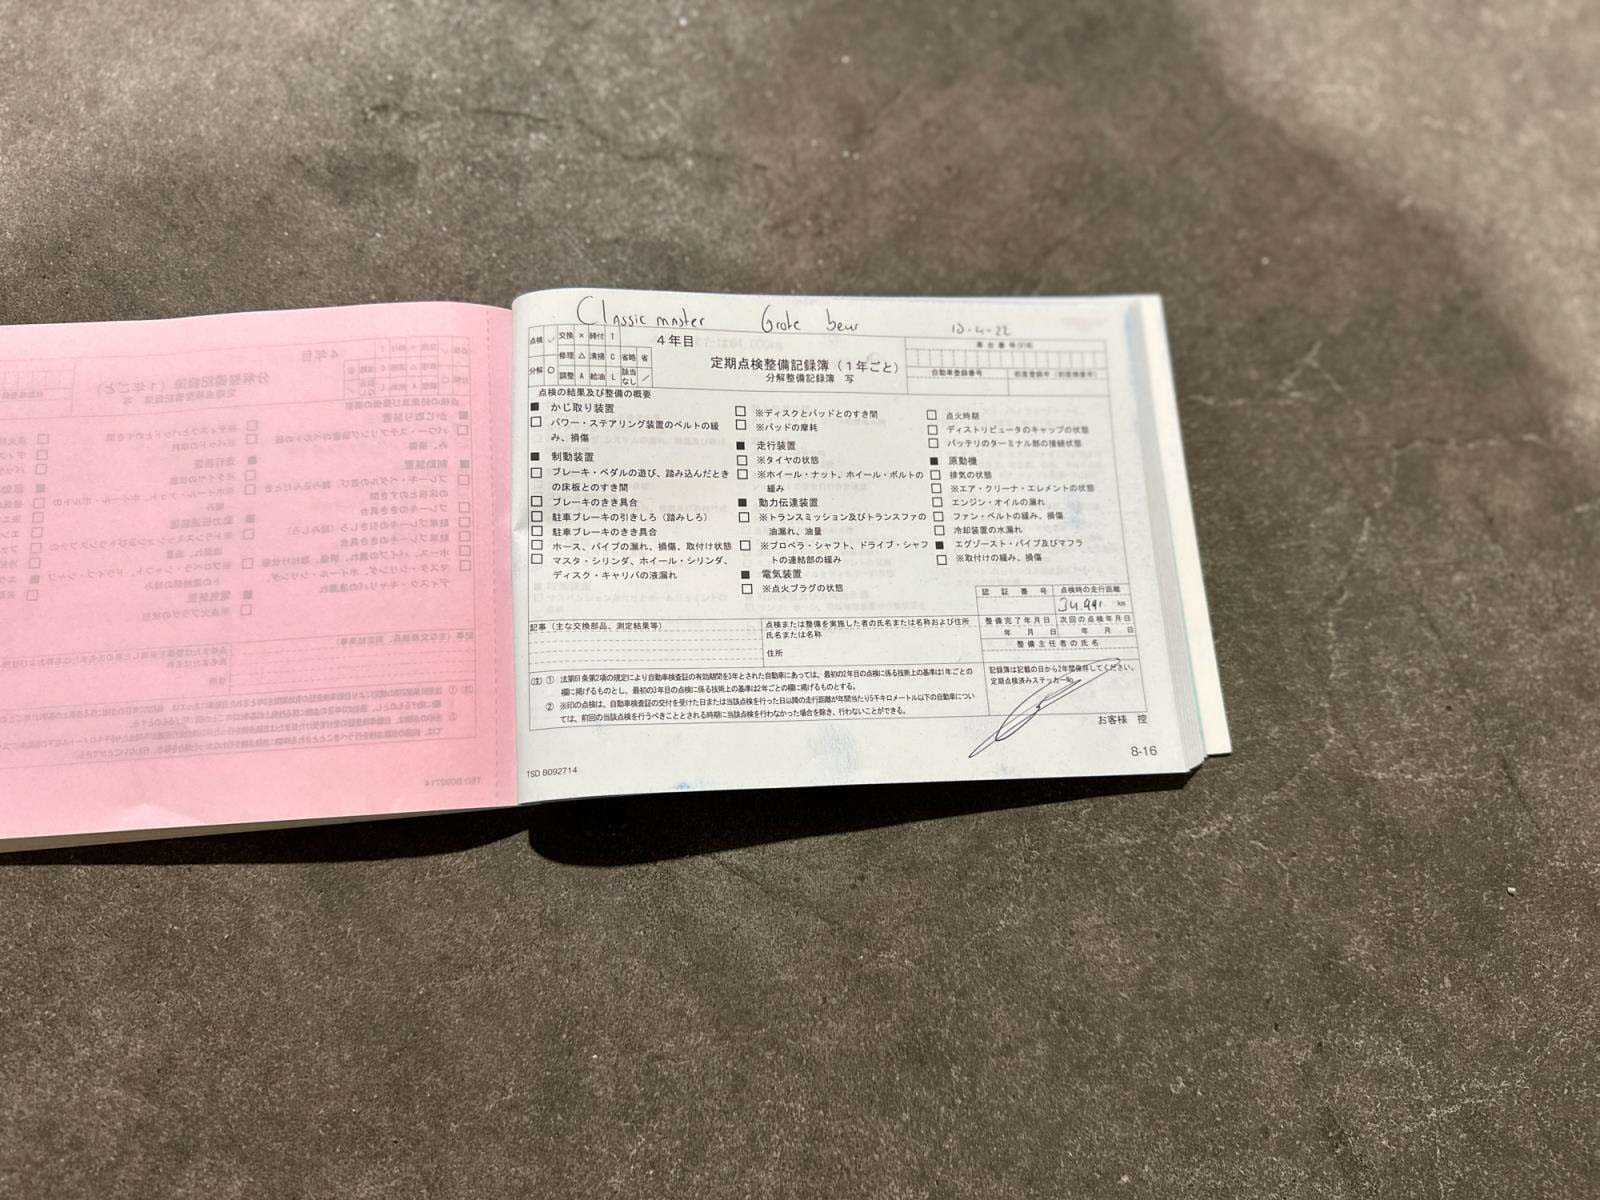 Classic master Grote beur
4年目
点検 ✓ 交換 × 締付 T
修理 △ 清掃 C 省略 省
分解 ○ 調整 A 給油 L 該当なし ／
定期点検整備記録簿（1年ごと）
分解整備記録簿 写
自動車登録番号
点検の結果及び整備の概要
■ かじ取り装置
□ パワー・ステアリング装置のベルトの緩
み、損傷
■ 制動装置
□ ブレーキ・ペダルの遊び、踏み込んだとき
の床板とのすき間
□ ブレーキのきき具合
□ 駐車ブレーキの引きしろ（踏みしろ）
□ 駐車ブレーキのきき具合
□ ホース、パイプの漏れ、損傷、取付け状態
□ マスタ・シリンダ、ホイール・シリンダ、
ディスク・キャリパの液漏れ
□ ※ディスクとパッドとのすき間
□ ※パッドの摩耗
■ 走行装置
□ ※タイヤの状態
□ ※ホイール・ナット、ホイール・ボルトの
緩み
■ 動力伝達装置
□ ※トランスミッション及びトランスファの
油漏れ、油量
□ ※プロペラ・シャフト、ドライブ・シャフ
トの連結部の緩み
■ 電気装置
□ ※点火プラグの状態
□ 点火時期
□ ディストリビュータのキャップの状態
□ バッテリのターミナル部の接続状態
■ 原動機
□ 排気の状態
□ ※エア・クリーナ・エレメントの状態
□ エンジン・オイルの漏れ
□ ファン・ベルトの緩み、損傷
□ 冷却装置の水漏れ
■ エグゾースト・パイプ及びマフラ
□ ※取付けの緩み、損傷
認証番号 点検時の走行距離
km
記事（主な交換部品、測定結果等）
点検または整備を実施した者の氏名または名称および住所
氏名または名称
住所
整備完了年月日 次回の点検年月日
年 月 日 年 月 日
整備主任者の氏名
（注）① 法第61条第2項の規定により自動車検査証の有効期間を3年とされた自動車にあっては、最初の2年目の点検に係る技術上の基準は1年ごとの
欄に掲げるものとし、最初の3年目の点検に係る技術上の基準は2年ごとの欄に掲げるものとする。
② ※印の点検は、自動車検査証の交付を受けた日または当該点検を行った日以降の走行距離が年間当たり5千キロメートル以下の自動車につい
ては、前回の当該点検を行うべきこととされる時期に当該点検を行わなかった場合を除き、行わないことができる。
記録簿は記載の日から2年間保存してください。
定期点検済みステッカーNo.
お客様 控
TSD B092714
8-16